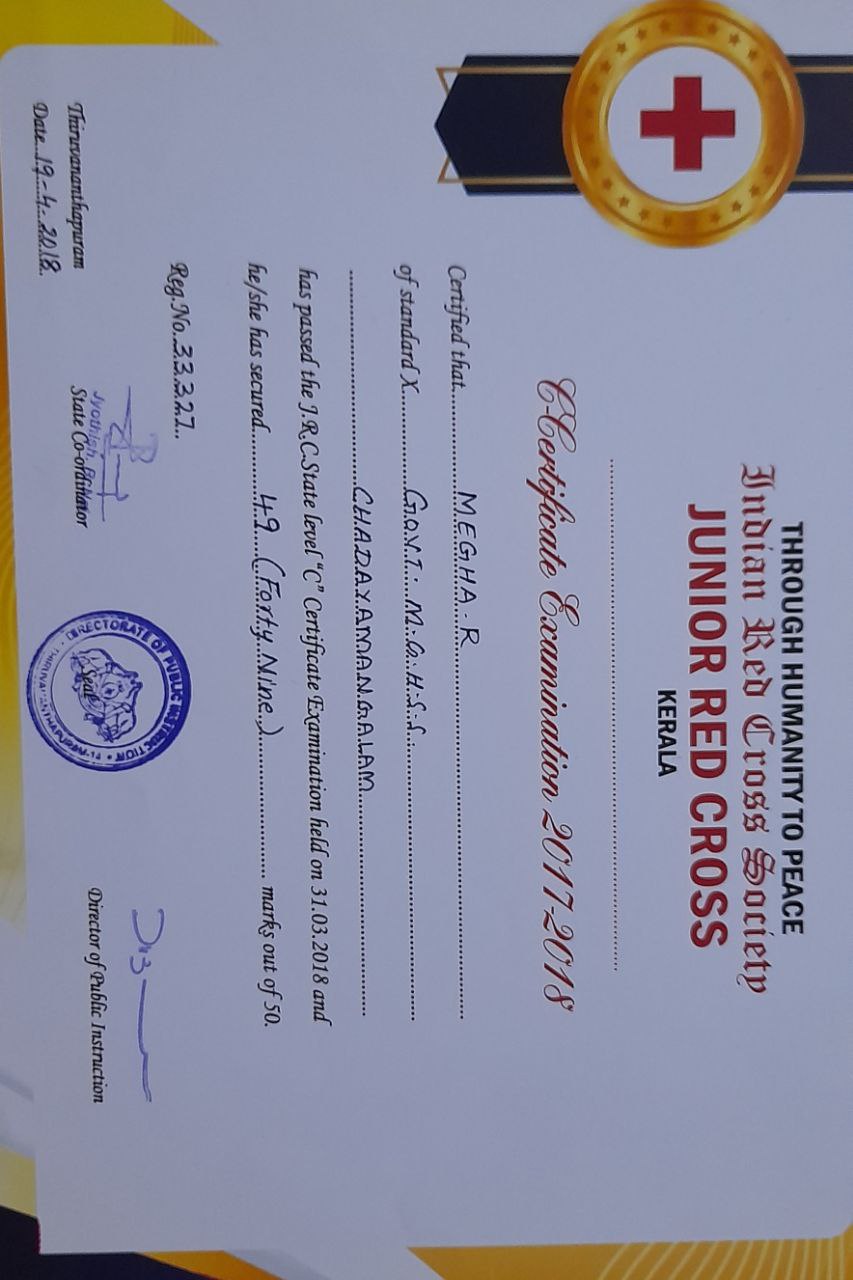 THROUGH HUMANITY TO PEACE
Indian Red Cross Society
JUNIOR RED CROSS
KERALA
C-Certificate Examination 2017-2018
Certified that MEGHA.R
of standard X GOVT. M.G.H.S.S.
CHADAYAMANGALAM
has passed the J.R.C.State level "C" Certificate Examination held on 31.03.2018 and
he/she has secured 49 (Forty Nine) marks out of 50.
Reg.No. 33327
Thiruvananthapuram
Date 19-4-2018
State Co-ordinator
DIRECTORATE OF PUBLIC INSTRUCTION
THIRUVANANTHAPURAM-14
Seal
Director of Public Instruction